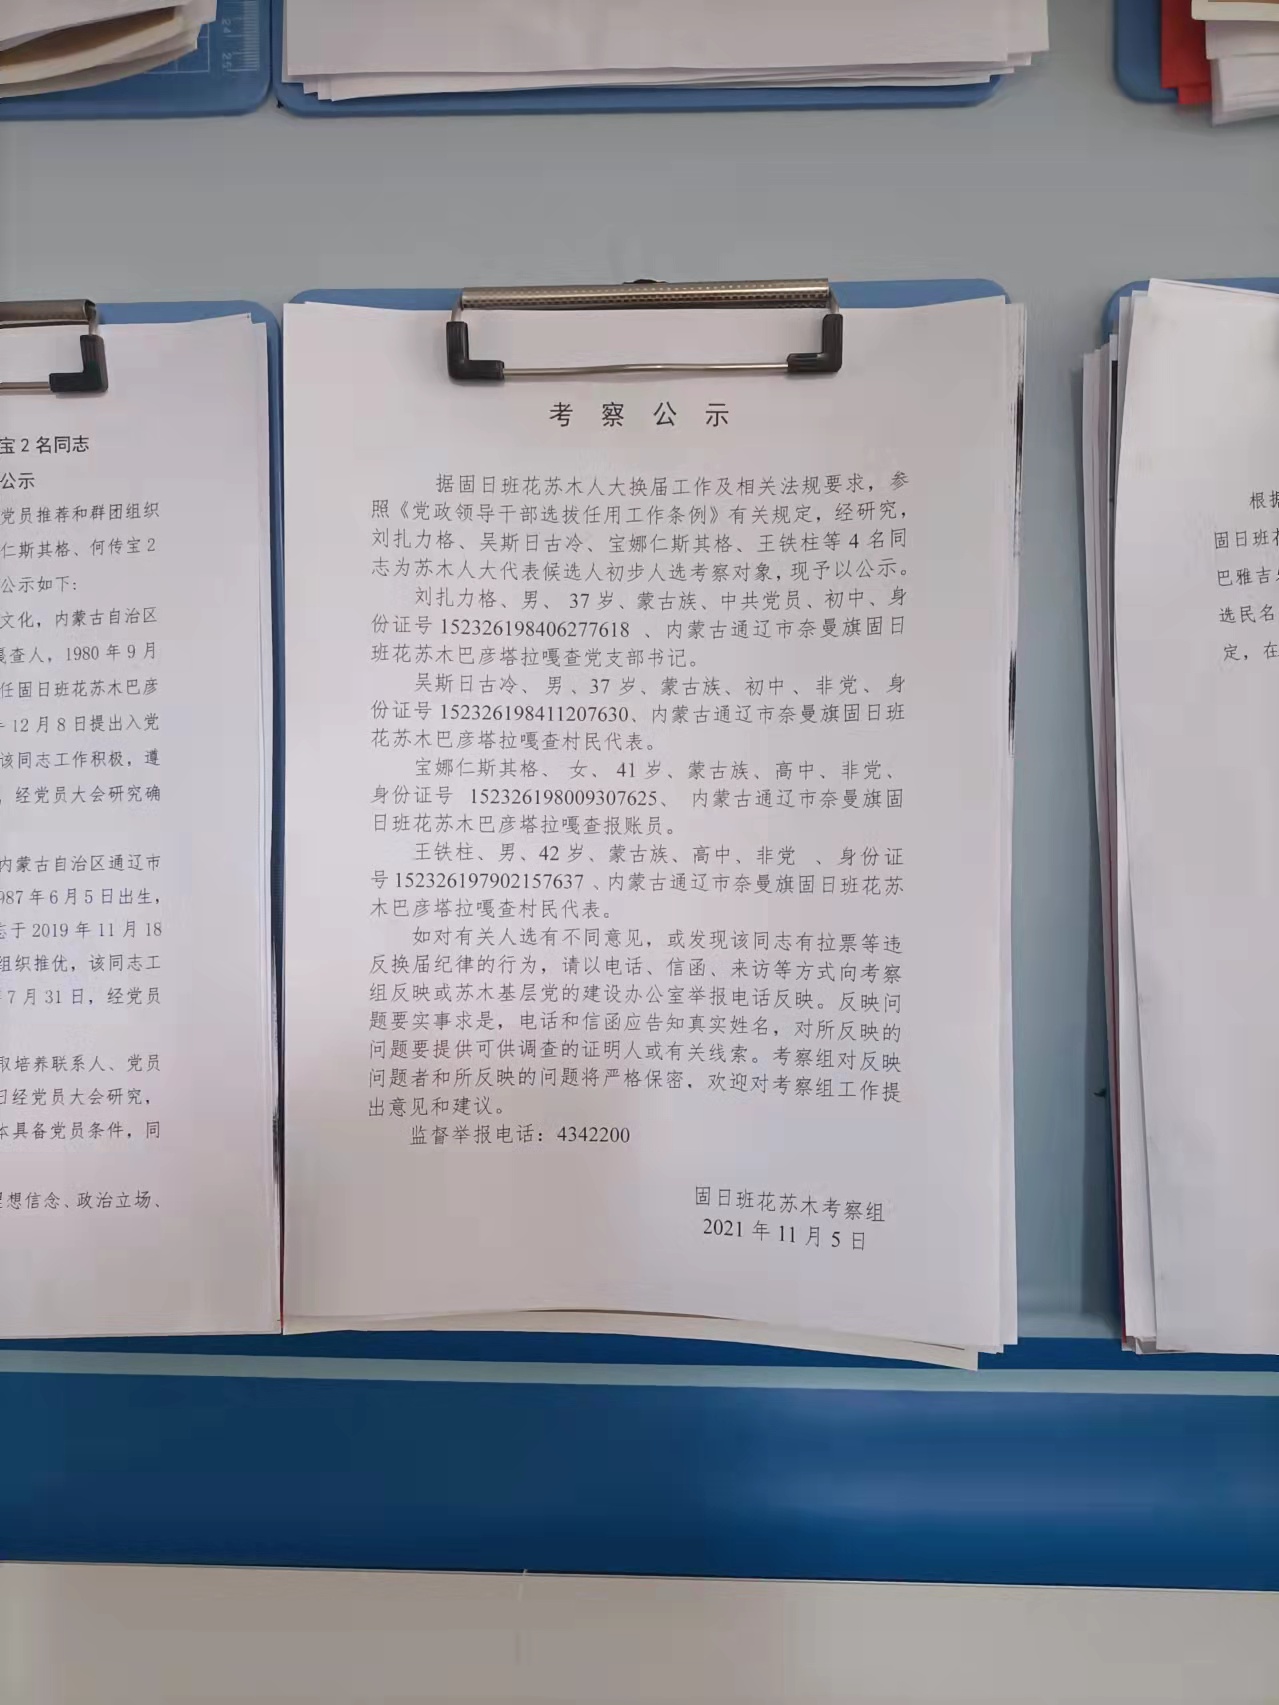 24
25
宝2名同志
公示
党员推荐和群团组织
仁斯其格、何传宝2
公示如下:
文化，内蒙古自治区
嘎查人，1980年9月
任固日班花苏木巴彦
12月8日提出入党
该同志工作积极，遵
，经党员大会研究确
内蒙古自治区通辽市
987年6月5日出生，
志于2019年11月18
组织推优，该同志工
年7月31日，经党员
取培养联系人、党员
日经党员大会研究，
本具备党员条件，同
理想信念、政治立场、
考察公示
据固日班花苏木人大换届工作及相关法规要求，参
照《党政领导干部选拔任用工作条例》有关规定，经研究，
刘扎力格、吴斯日古冷、宝娜仁斯其格、王铁柱等4名同
志为苏木人大代表候选人初步人选考察对象，现予以公示。
刘扎力格、男、37岁、蒙古族、中共党员、初中、身
份证号152326198406277618、内蒙古通辽市奈曼旗固日
班花苏木巴彦塔拉嘎查党支部书记。
吴斯日古冷、男、37岁、蒙古族、初中、非党、身
份证号152326198411207630、内蒙古通辽市奈曼旗固日班
花苏木巴彦塔拉嘎查村民代表。
宝娜仁斯其格、女、41岁、蒙古族、高中、非党、
身份证号 152326198009307625、内蒙古通辽市奈曼旗固
日班花苏木巴彦塔拉嘎查报账员。
王铁柱、男、42岁、蒙古族、高中、非党 、身份证
号152326197902157637、内蒙古通辽市奈曼旗固日班花苏
木巴彦塔拉嘎查村民代表。
如对有关人选有不同意见，或发现该同志有拉票等违
反换届纪律的行为，请以电话、信函、来访等方式向考察
组反映或苏木基层党的建设办公室举报电话反映。反映问
题要实事求是，电话和信函应告知真实姓名，对所反映的
问题要提供可供调查的证明人或有关线索。考察组对反映
问题者和所反映的问题将严格保密，欢迎对考察组工作提
出意见和建议。
监督举报电话：4342200
固日班花苏木考察组
2021年11月5日
根据
固日班花
巴雅吉
选民名
定，在